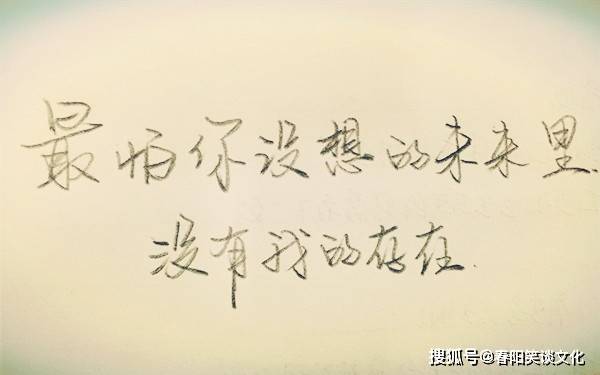 最怕你设想的未来里.
没有我的存在.
搜狐号@春阳笑谈文化